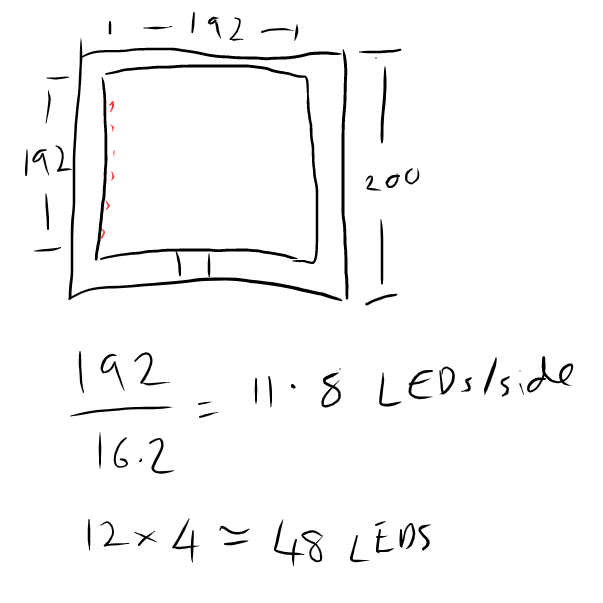 192
192
200
192
16.2
= 11.8 LEDs/side
12 × 4 ≃ 48 LEDS